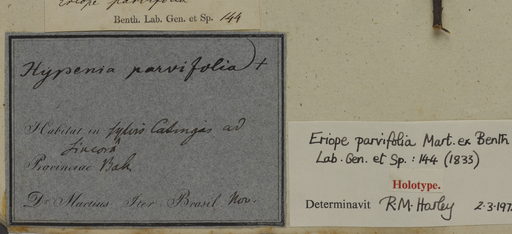 Eriope parvifolia
Benth. Lab. Gen. et Sp. 144
Hypenia parvifolia) +
Habitat in sylvis Catingas ad
Sincorá
Provinciae Bah.
Dr Martius Iter Brasil. Nov.
Eriope parvifolia Mart. ex Benth
Lab. Gen. et Sp. : 144 (1833)
Holotype.
Determinavit R.M. Harley 2-3-197